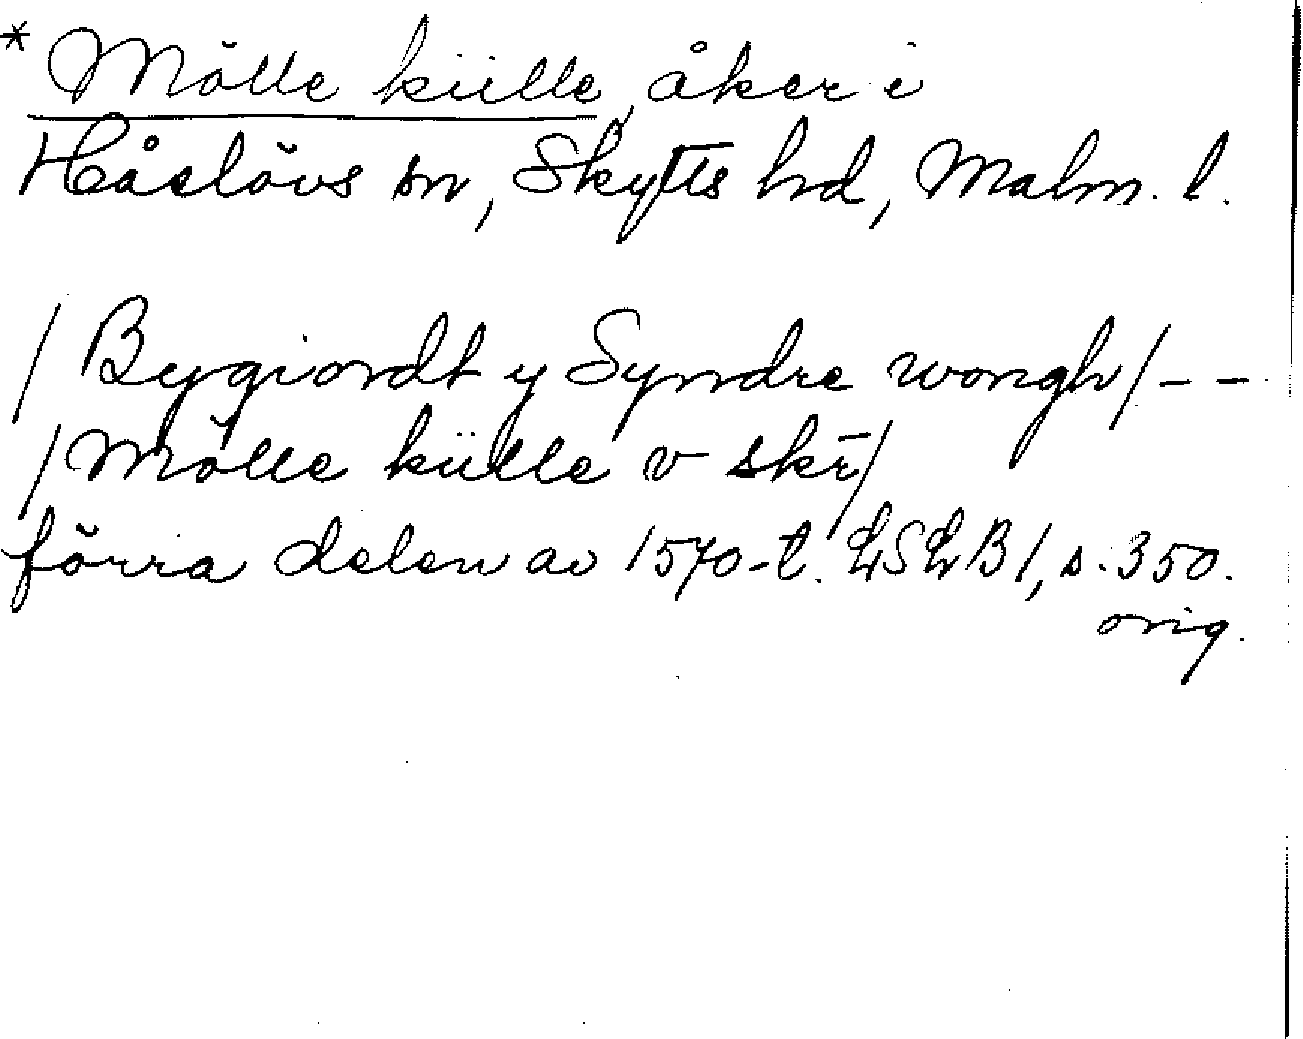 * Mölle külle, åker i
Håslövs sn, Skytts hd, Malm. l.
/ Bygiordt y Syndre wongh / - -
/ Mölle külle v skr̄ /
förra delen av 1570-t. LSLB 1, s. 350.
orig.